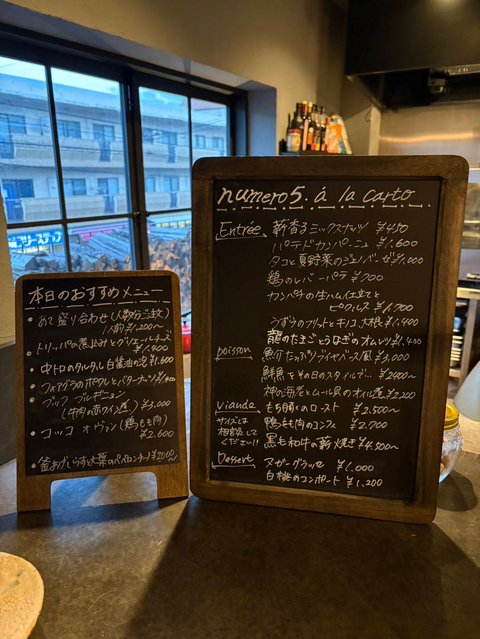 本日のおすすめメニュー
・あて盛り合わせ(人数分ご注文)
1人前 ¥1,200〜
・トリッパの煮込みとグリエールチーズ
・中トロのタルタル 白醤油の泡 ¥1,600
・フォアグラのポワレとバターナッツ
・ブッフ ブルギニョン
(牛肉の赤ワイン煮) ¥3,000
・コッコ オ ヴァン (鶏もも肉)
¥2,600
・釜あげしらすと大葉のペペロンチーノ ¥2000〜
numero5. à la carto
Entrée 薪香るミックスナッツ ¥450
パテドカンパーニュ ¥1,600
タコと夏野菜のジェノベーゼ ¥1,000
鶏のレバーパテ ¥700
カンパチの生ハム仕立てと
ピクルス ¥1,700
うずらのフリットとキノコ大根 ¥1,400
龍のたまごとうなぎのオムレツ
poisson 魚介たっぷりブイヤベース風 ¥3,000
鮮魚 その日のスタイルで… ¥2400〜
神の海老とムール貝のオイル煮 ¥2,200
Viande もち豚くのロースト ¥2,500〜
サイズは
相談して
ください!!
鴨もも肉のコンフィ ¥2,700
黒毛和牛の薪焼き ¥4,500〜
Dessert ヌガーグラッセ ¥1,000
白桃のコンポート ¥1,200